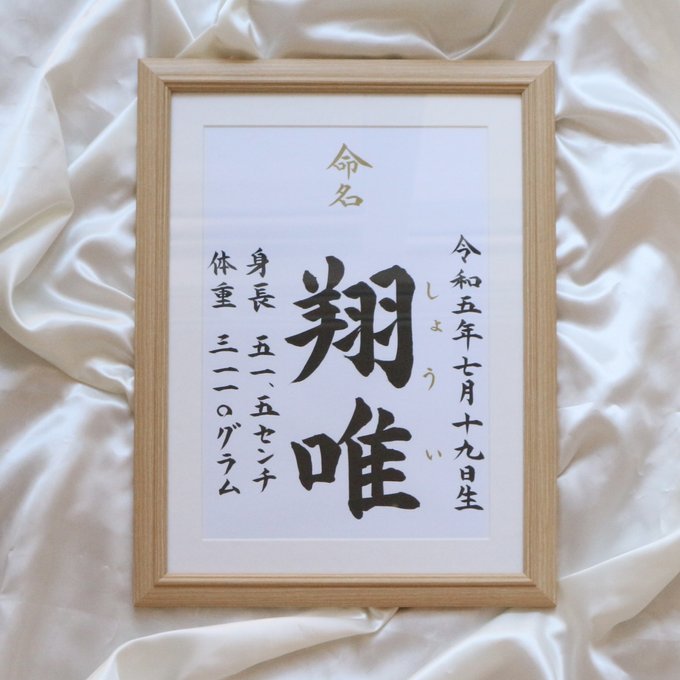 命名
令和五年七月十九日生
しょうい
翔唯
身長 五一、五センチ
体重 三一一〇グラム